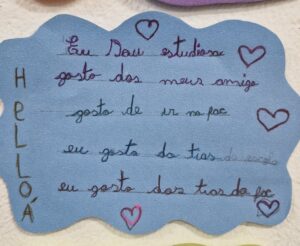 HELLOÁ
Eu Sou estudiosa
gosto dos meus amigo
gosto de ir no poc
eu gosto da tias da escola
eu gosto das tias do poc